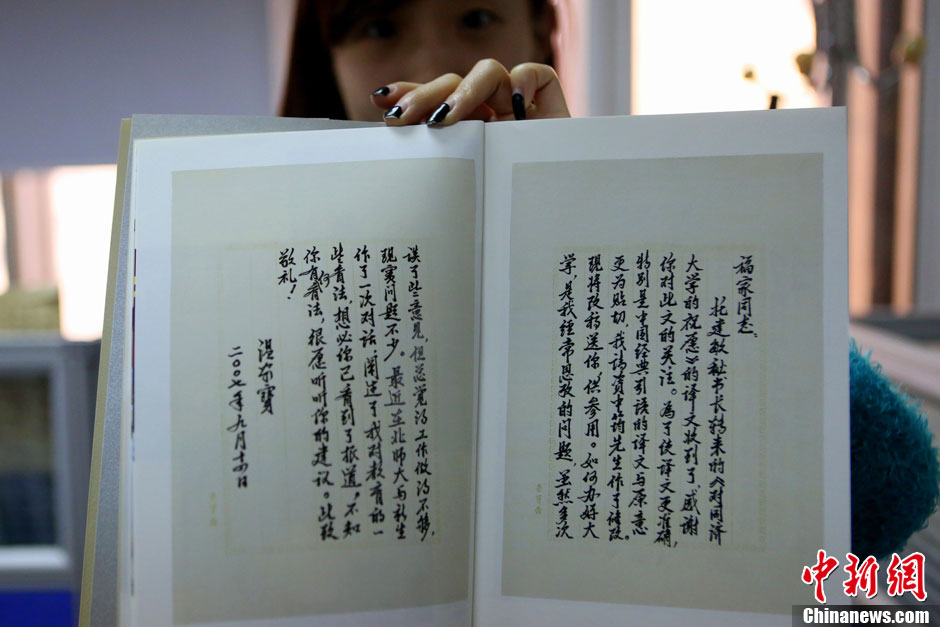 福家同志、
托建敏秘书长转来的《对同济
大学的祝愿》的译文收到了,感谢
你对此文的关注。为了使译文更准确,
特别是中国经典引语的译文与原意
更为贴切,我请资中筠先生作了修改。
现将改稿送你供参用。如何办好大
学,是我经常思考的问题,虽然多次
谈了些意见,但总觉得工作做得不够,
现实问题不少。最近在北师大与新生
作了一次对话,阐述了我对教育的一
些看法,想必你已看到了报道。不知
你有何看法,很愿听听你的建议。此致
敬礼!
温家宝
二〇〇七年九月十四日
中新网
Chinanews.com